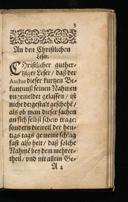 3
An den Christlichen
Leser.
Christlicher guther-
tziger Leser / daß der
Auctor dieser kurtzen Be-
kantnuß seinen Nahmen
vnvermeldet gelassen / ist
nicht der gestalt geschehē /
als ob man dieser sachen
an sich selbst schew trage:
sondern dieweil der heu-
tigs tags gemeine schlag
fast also ist / daß siche
Nahmē bey dem mehrer-
theil / und mit allein Ge-
A 2